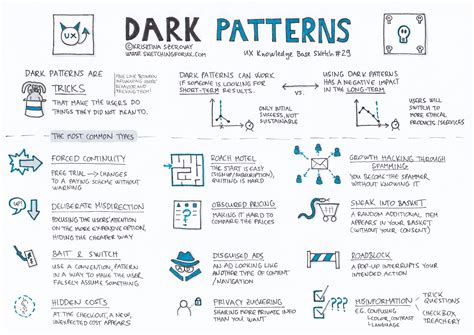 DARK PATTERNS
UX
©KRISZTINA SZEROVAY
WWW.SKETCHINGFORUX.COM
UX Knowledge Base Sketch #29
DARK PATTERNS ARE
TRICKS
THAT MAKE THE USERS DO
THINGS THEY DID NOT MEAN TO.
DARK PATTERNS CAN WORK
IF SOMEONE IS LOOKING FOR
SHORT-TERM RESULTS.
ONLY INITIAL
SUCCESS, NOT
SUSTAINABLE
VS.
USING DARK PATTERNS
HAS A NEGATIVE IMPACT
IN THE LONG-TERM
USERS WILL
SWITCH TO
MORE ETHICAL
PRODUCTS/SERVICES
THE MOST COMMON TYPES
FORCED CONTINUITY
FREE TRIAL → CHANGES TO
A PAYING SCHEME WITHOUT
WARNING
ROACH MOTEL
THE START IS EASY
QUITTING IS HARD
GROWTH HACKING THROUGH
SPAMMING
YOU BECOME THE SPAMMER,
WITHOUT KNOWING IT
WP!
DELIBERATE MISDIRECTION
FOCUSING THE USERS' ATTENTION
ON THE MORE EXPENSIVE OPTION,
HIDING THE CHEAPER WAY
OBSCURED PRICING
MAKING IT HARD TO
COMPARE THE PRICES
SNEAK INTO BASKET
A RANDOM ADDITIONAL ITEM
APPEARS IN YOUR BASKET
(WITHOUT YOUR CONSENT)
BAIT & SWITCH
USE A CONVENTION, PATTERN
IN A WAY TO MAKE THE USER
FALSELY ASSUME SOMETHING
DISGUISED ADS
AN AD LOOKING LIKE
ANOTHER TYPE OF CONTENT /
NAVIGATION
ROADBLOCK
A POP-UP INTERRUPTS YOUR
INTENDED ACTION
$
HIDDEN COSTS
AT THE CHECKOUT, A NEW,
UNEXPECTED COST APPEARS
PRIVACY ZUCKERING
SHARING MORE PRIVATE INFO
THAN YOU WANT
MISINFORMATION
TRICK
QUESTIONS
CHECKBOX
TREACHERY